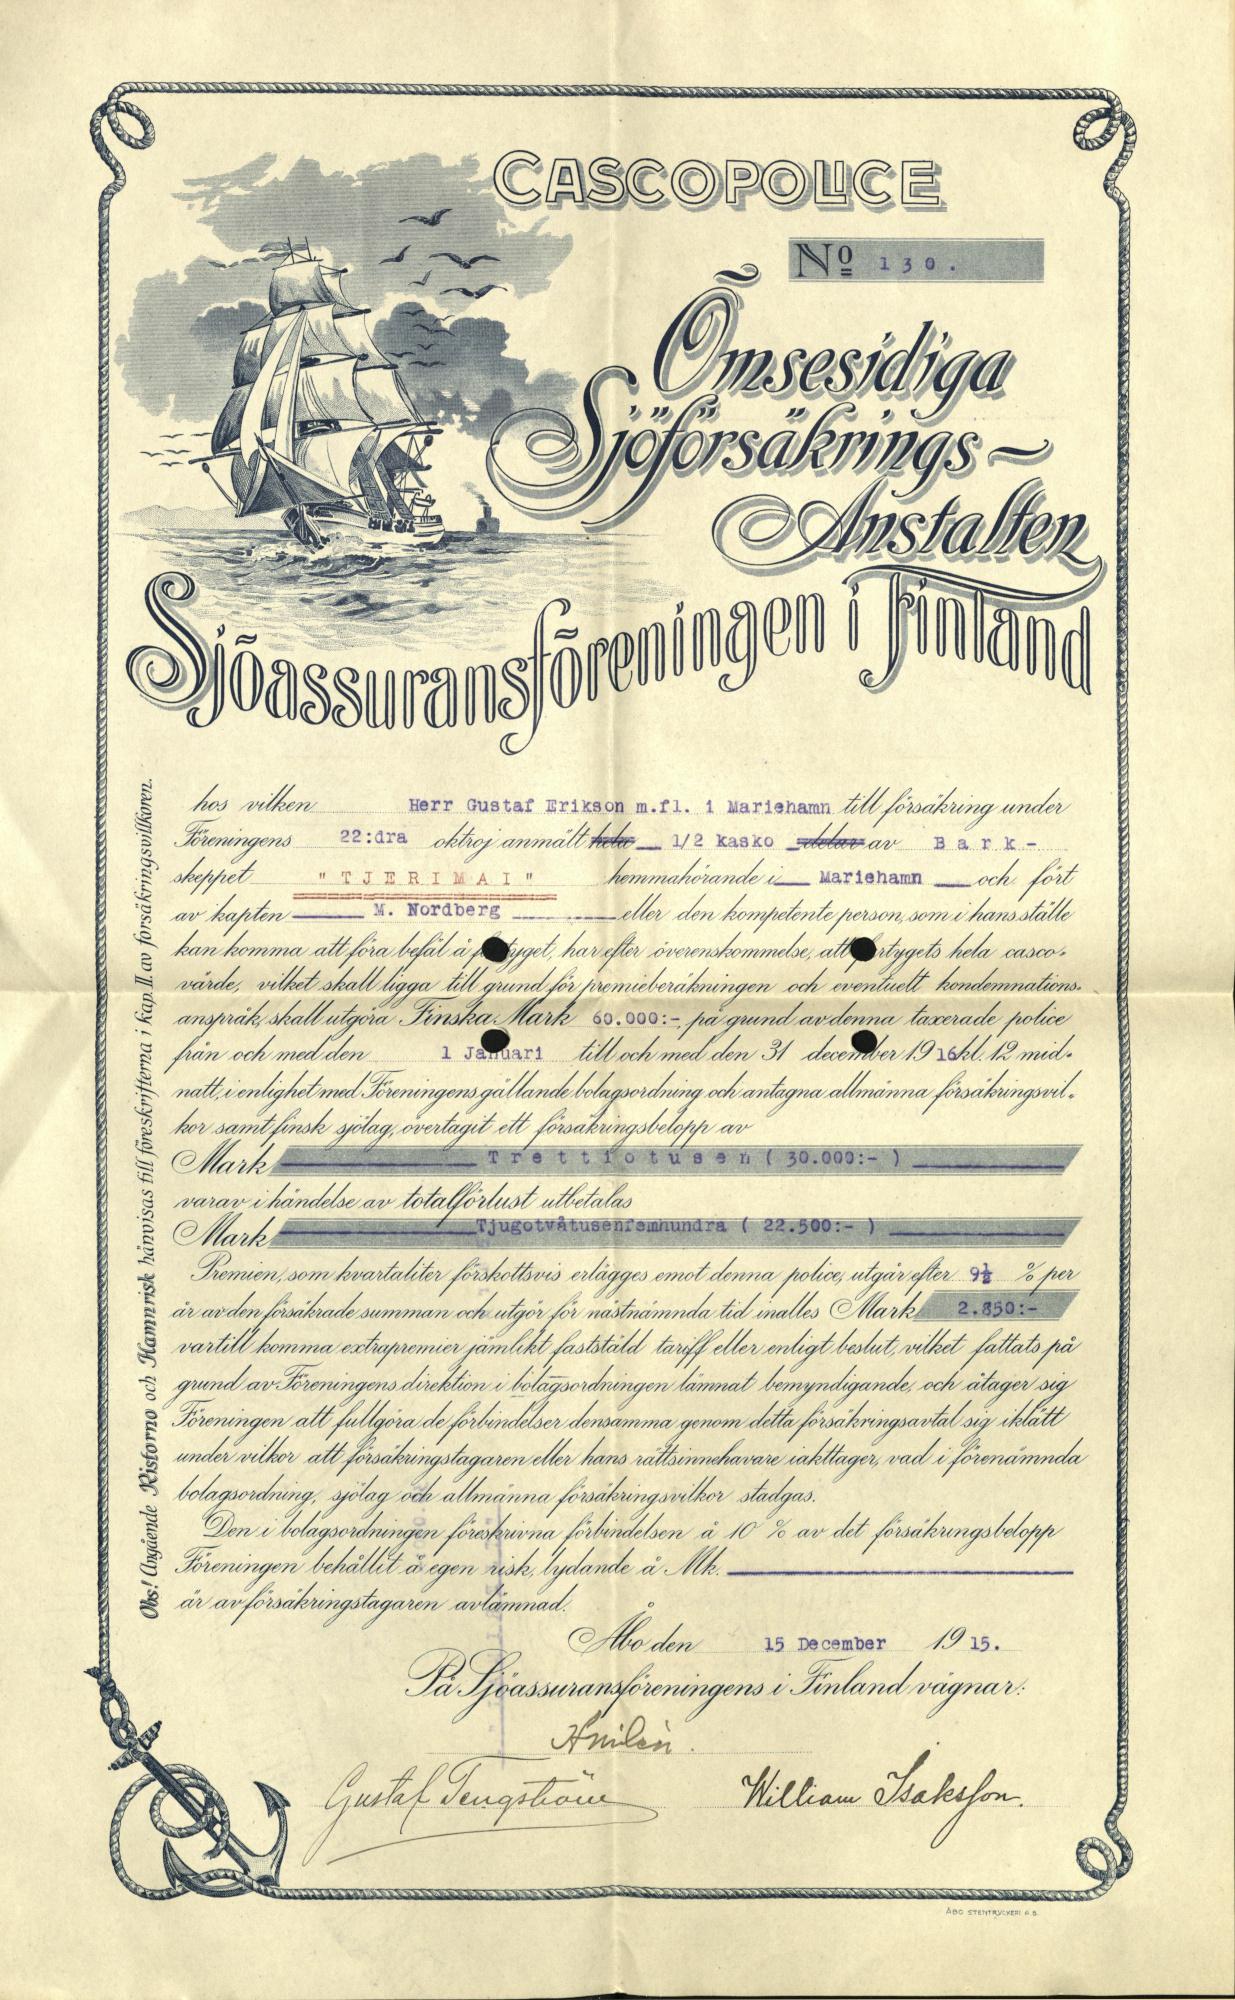 CASCOPOLICE
No 130.
Ömsesidiga
Sjöförsäkrings-
Anstalten
Sjöassuransföreningen i Finland
hos vilken Herr Gustaf Erikson m.fl. i Mariehamn till försäkring under
Föreningens 22:dra oktroj anmält hela 1/2 kasko delar av Bark-
skeppet "TJERIMAI" hemmahörande i Mariehamn och fört
av kapten M. Nordberg eller den kompetente person, som i hans ställe
kan komma att föra befäl å fartyget, har efter överenskommelse, att fartygets hela casco-
värde, vilket skall ligga till grund för premieberäkningen och eventuelt kondemnations-
anspråk, skall utgöra Finska Mark 60.000:-, på grund av denna taxerade police
från och med den 1 Januari till och med den 31 december 1916 kl. 12 mid-
natt, i enlighet med Föreningens gällande bolagsordning och antagna allmänna försäkringsvil-
kor samt finsk sjölag, övertagit ett försäkringsbelopp av
Mark Trettiotusen ( 30.000:- )
varav i händelse av totalförlust utbetalas
Mark Tjugotvåtusenfemhundra ( 22.500:- )
Premien, som kvartaliter förskottsvis erlägges emot denna police, utgår efter 9½ % per
år av den försäkrade summan och utgör för nästnämnda tid inalles Mark 2.850:-
vartill komma extrapremier jämlikt fastställd tariff eller enligt beslut, vilket fattats på
grund av Föreningens direktion i bolagsordningen lämnat bemyndigande, och åtager sig
Föreningen att fullgöra de förbindelser densamma genom detta försäkringsavtal sig iklätt
under vilkor att försäkringstagaren eller hans rättsinnehavare iakttager, vad i förenämnda
bolagsordning, sjölag och allmänna försäkringsvilkor stadgas.
Den i bolagsordningen föreskrivna förbindelsen å 10 % av det försäkringsbelopp
Föreningen behållit å egen risk, lydande å Mk.
är av försäkringstagaren avlämnad.
Åbo den 15 December 1915.
På Sjöassuransföreningens i Finland vägnar:
Gustaf Tengström William Isaksson.
Obs! Angående Ristorno och Hamnrisk hänvisas till föreskrifterna i Kap. II. av försäkringsvillkoren.
ÅBO STENTRYCKERI A.B.